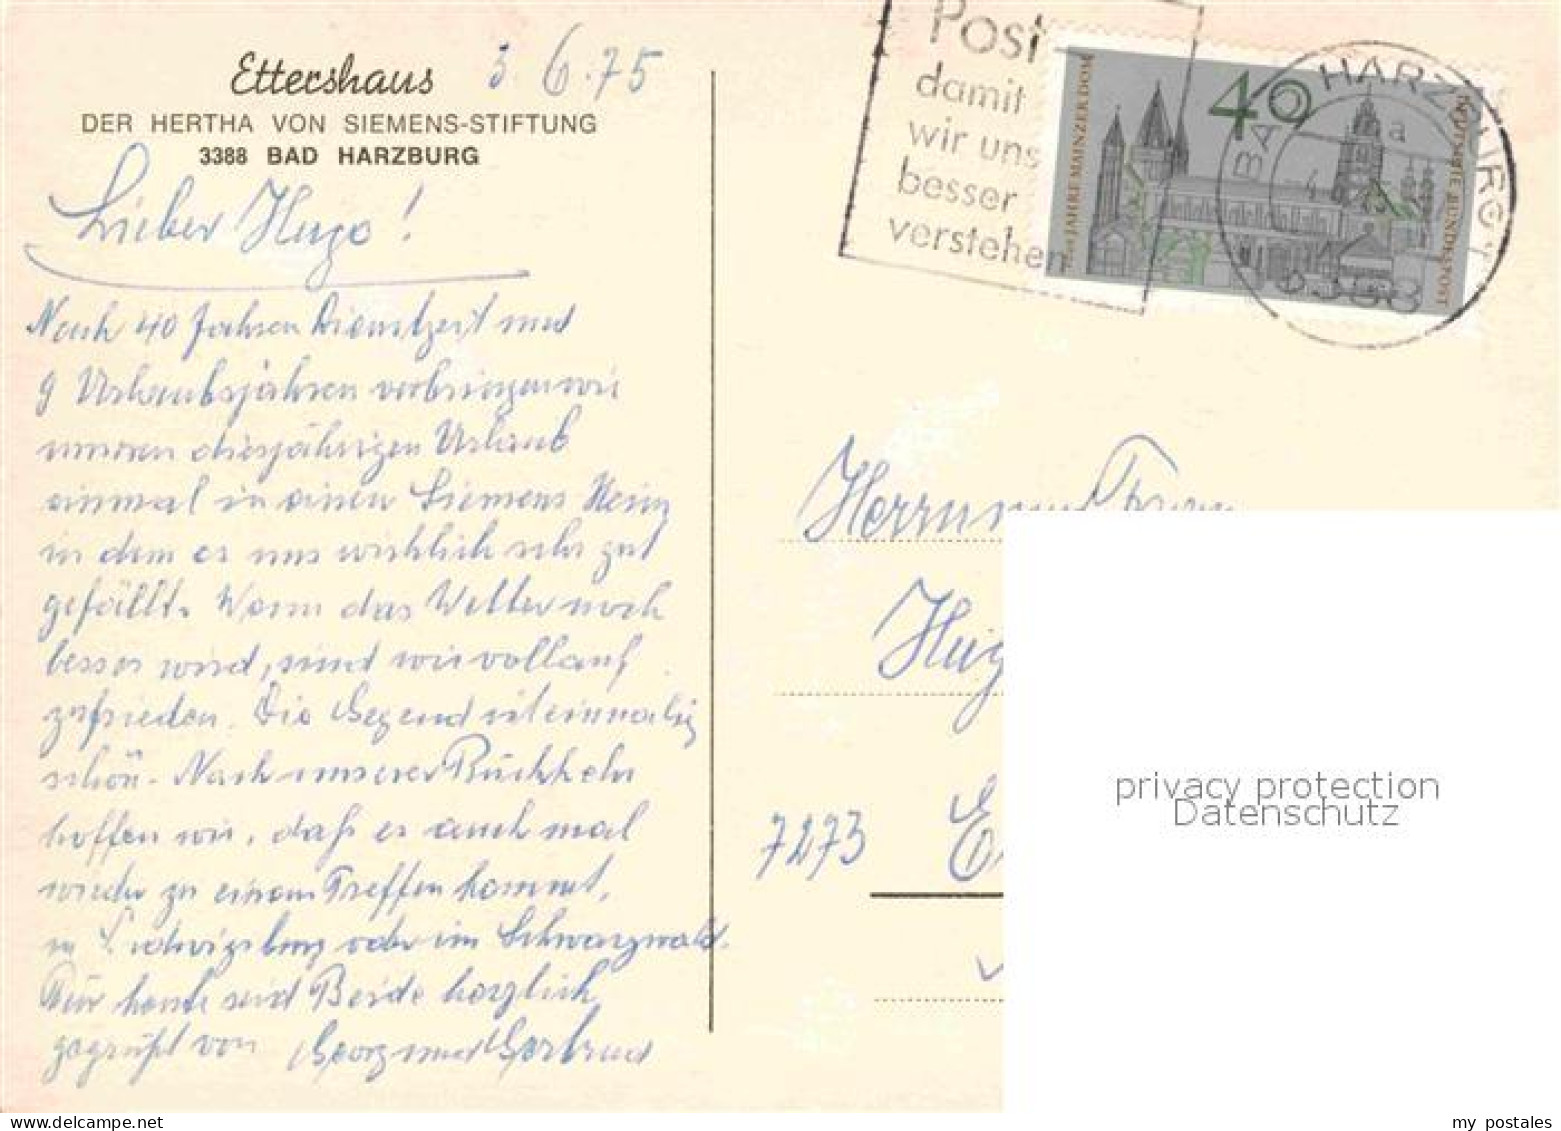 Ettershaus 3.6.75
DER HERTHA VON SIEMENS-STIFTUNG
3388 BAD HARZBURG
Lieber Hugo!
Nach 40 Jahren Dienstzeit und
9 Urlaubsjahren verbringen wir
unseren diesjährigen Urlaub
einmal in einen Siemens Heim
in dem es uns wirklich sehr gut
gefällt. Wenn das Wetter noch
besser wird, sind wir vollauf
zufrieden. Die Gegend ist einmalig
schön. Nach unserer Rückkehr
hoffen wir, daß es auch mal
wieder zu einem Treffen kommt,
in Ludwigsburg oder im Schwarzwald.
Für heute seid Beide herzlich
gegrüßt von Georg und Gertrud
Post
damit
wir uns
besser
verstehen
40
1000 JAHRE MAINZER DOM
DEUTSCHE BUNDESPOST
BAD HARZBURG 1
a
3388
Herrn und Frau
Hug
7273
privacy protection
Datenschutz
my postales